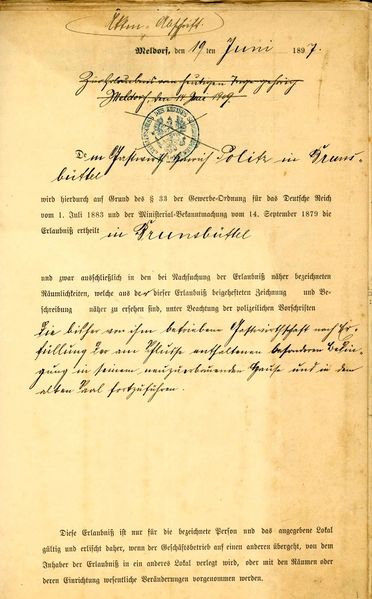 Akten-Abschrift.
Meldorf, den 19 ten Juni 1897.
Meldorf, den
Dem Gastwirth Hinrich Politz in Bruns-
büttel
wird hierdurch auf Grund des § 33 der Gewerbe-Ordnung für das Deutsche Reich
vom 1. Juli 1883 und der Ministerial-Bekanntmachung vom 14. September 1879 die
Erlaubniß ertheilt in Brunsbüttel
und zwar ausschließlich in den bei Nachsuchung der Erlaubniß näher bezeichneten
Räumlichkeiten, welche aus der dieser Erlaubniß beigehefteten Zeichnung und Be-
schreibung näher zu ersehen sind, unter Beachtung der polizeilichen Vorschriften
die bisher von ihm betriebene Gastwirthschaft nach Er-
füllung der am Schlusse enthaltenen besonderen Bedin-
gung in seinem neuzuerbauenden Hause und in dem
alten Saal fortzuführen.
Diese Erlaubniß ist nur für die bezeichnete Person und das angegebene Lokal
gültig und erlischt daher, wenn der Geschäftsbetrieb auf einen anderen übergeht, von dem
Inhaber der Erlaubniß in ein anderes Lokal verlegt wird, oder mit den Räumen oder
deren Einrichtung wesentliche Veränderungen vorgenommen werden.